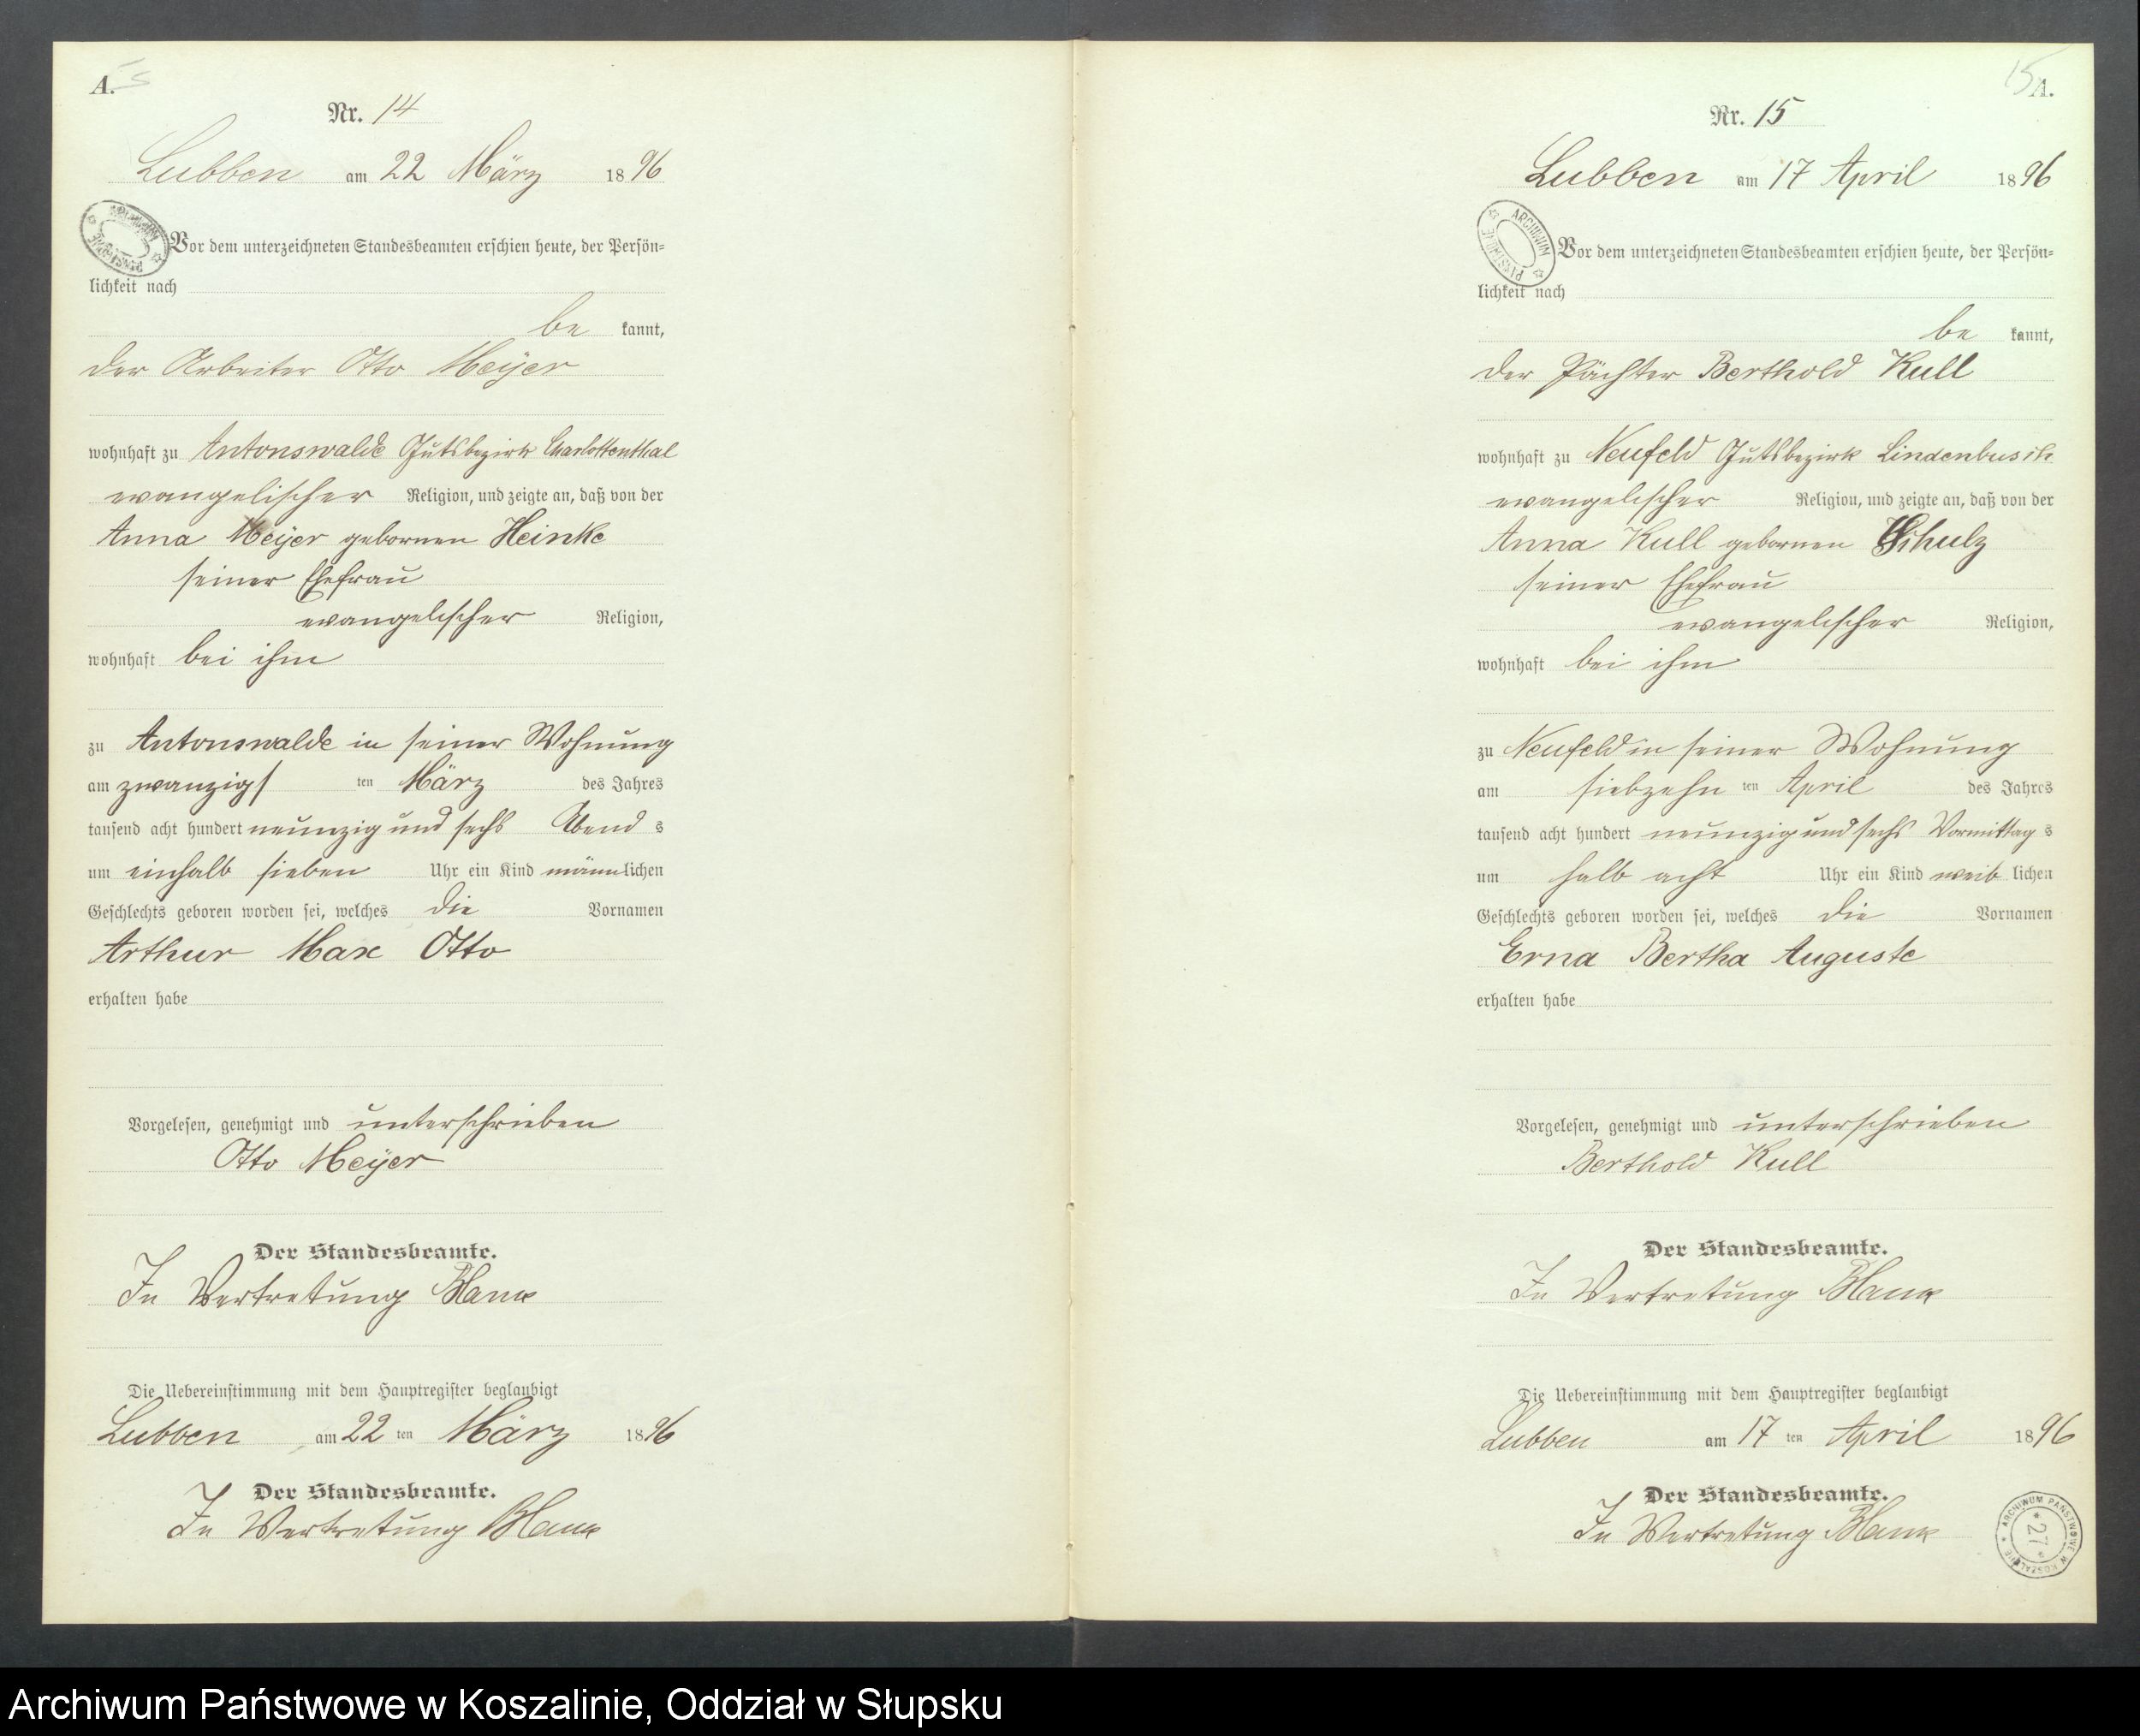 A.
Nr. 14
Lubben am 22 März 1896
Vor dem unterzeichneten Standesbeamten erschien heute, der Persön=
lichkeit nach
be kannt,
der Arbeiter Otto Meÿer
wohnhaft zu Antonswalde Gutsbezirk Charlottenthal
evangelischer Religion, und zeigte an, daß von der
Anna Meÿer gebornen Heinke
seiner Ehefrau
evangelischer Religion,
wohnhaft bei ihm
zu Antonswalde in seiner Wohnung
am zwanzigsten März des Jahres
tausend acht hundert neunzig und sechs Abends
um einhalb sieben Uhr ein Kind männlichen
Geschlechts geboren worden sei, welches die Vornamen
Arthur Max Otto
erhalten habe
Vorgelesen, genehmigt und unterschrieben
Otto Meÿer
Der Standesbeamte.
In Vertretung
Die Uebereinstimmung mit dem Hauptregister beglaubigt
Lubben am 22 ten März 1896
Der Standesbeamte.
In Vertretung
15
A.
Nr. 15
Lubben am 17 April 1896
ARCHIWUM
Vor dem unterzeichneten Standesbeamten erschien heute, der Persön=
lichkeit nach
be kannt,
der Pächter Berthold Kull
wohnhaft zu Neufeld Gutsbezirk Lindenbusch
evangelischer Religion, und zeigte an, daß von der
Anna Kull gebornen Schulz
seiner Ehefrau
evangelischer Religion,
wohnhaft bei ihm
zu Neufeld in seiner Wohnung
am siebzehn ten April des Jahres
tausend acht hundert neunzig und sechs Vormittags
um halb acht Uhr ein Kind weiblichen
Geschlechts geboren worden sei, welches die Vornamen
Erna Bertha Auguste
erhalten habe
Vorgelesen, genehmigt und unterschrieben
Berthold Kull
Der Standesbeamte.
In Vertretung
Die Uebereinstimmung mit dem Hauptregister beglaubigt
Lubben am 17 ten April 1896
Der Standesbeamte.
In Vertretung
ARCHIWUM PAŃSTWOWE W KOSZALINIE
* 27 *
Archiwum Państwowe w Koszalinie, Oddział w Słupsku